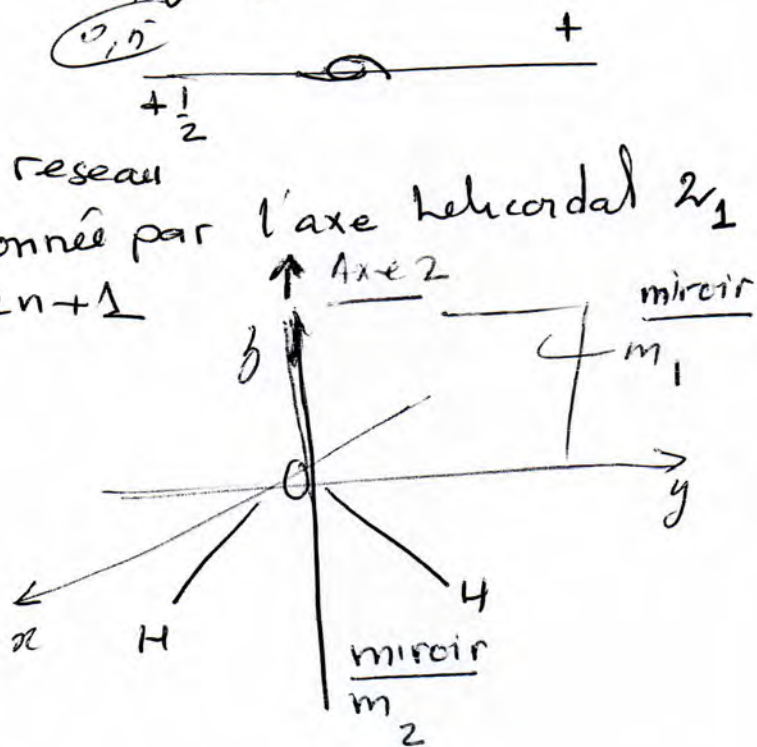 +
+ 1/2
reseau
onnée par l'axe helicordal 2₁
2n+1
Axe 2
miroir
m₁
O
y
x
H
H
miroir
m₂